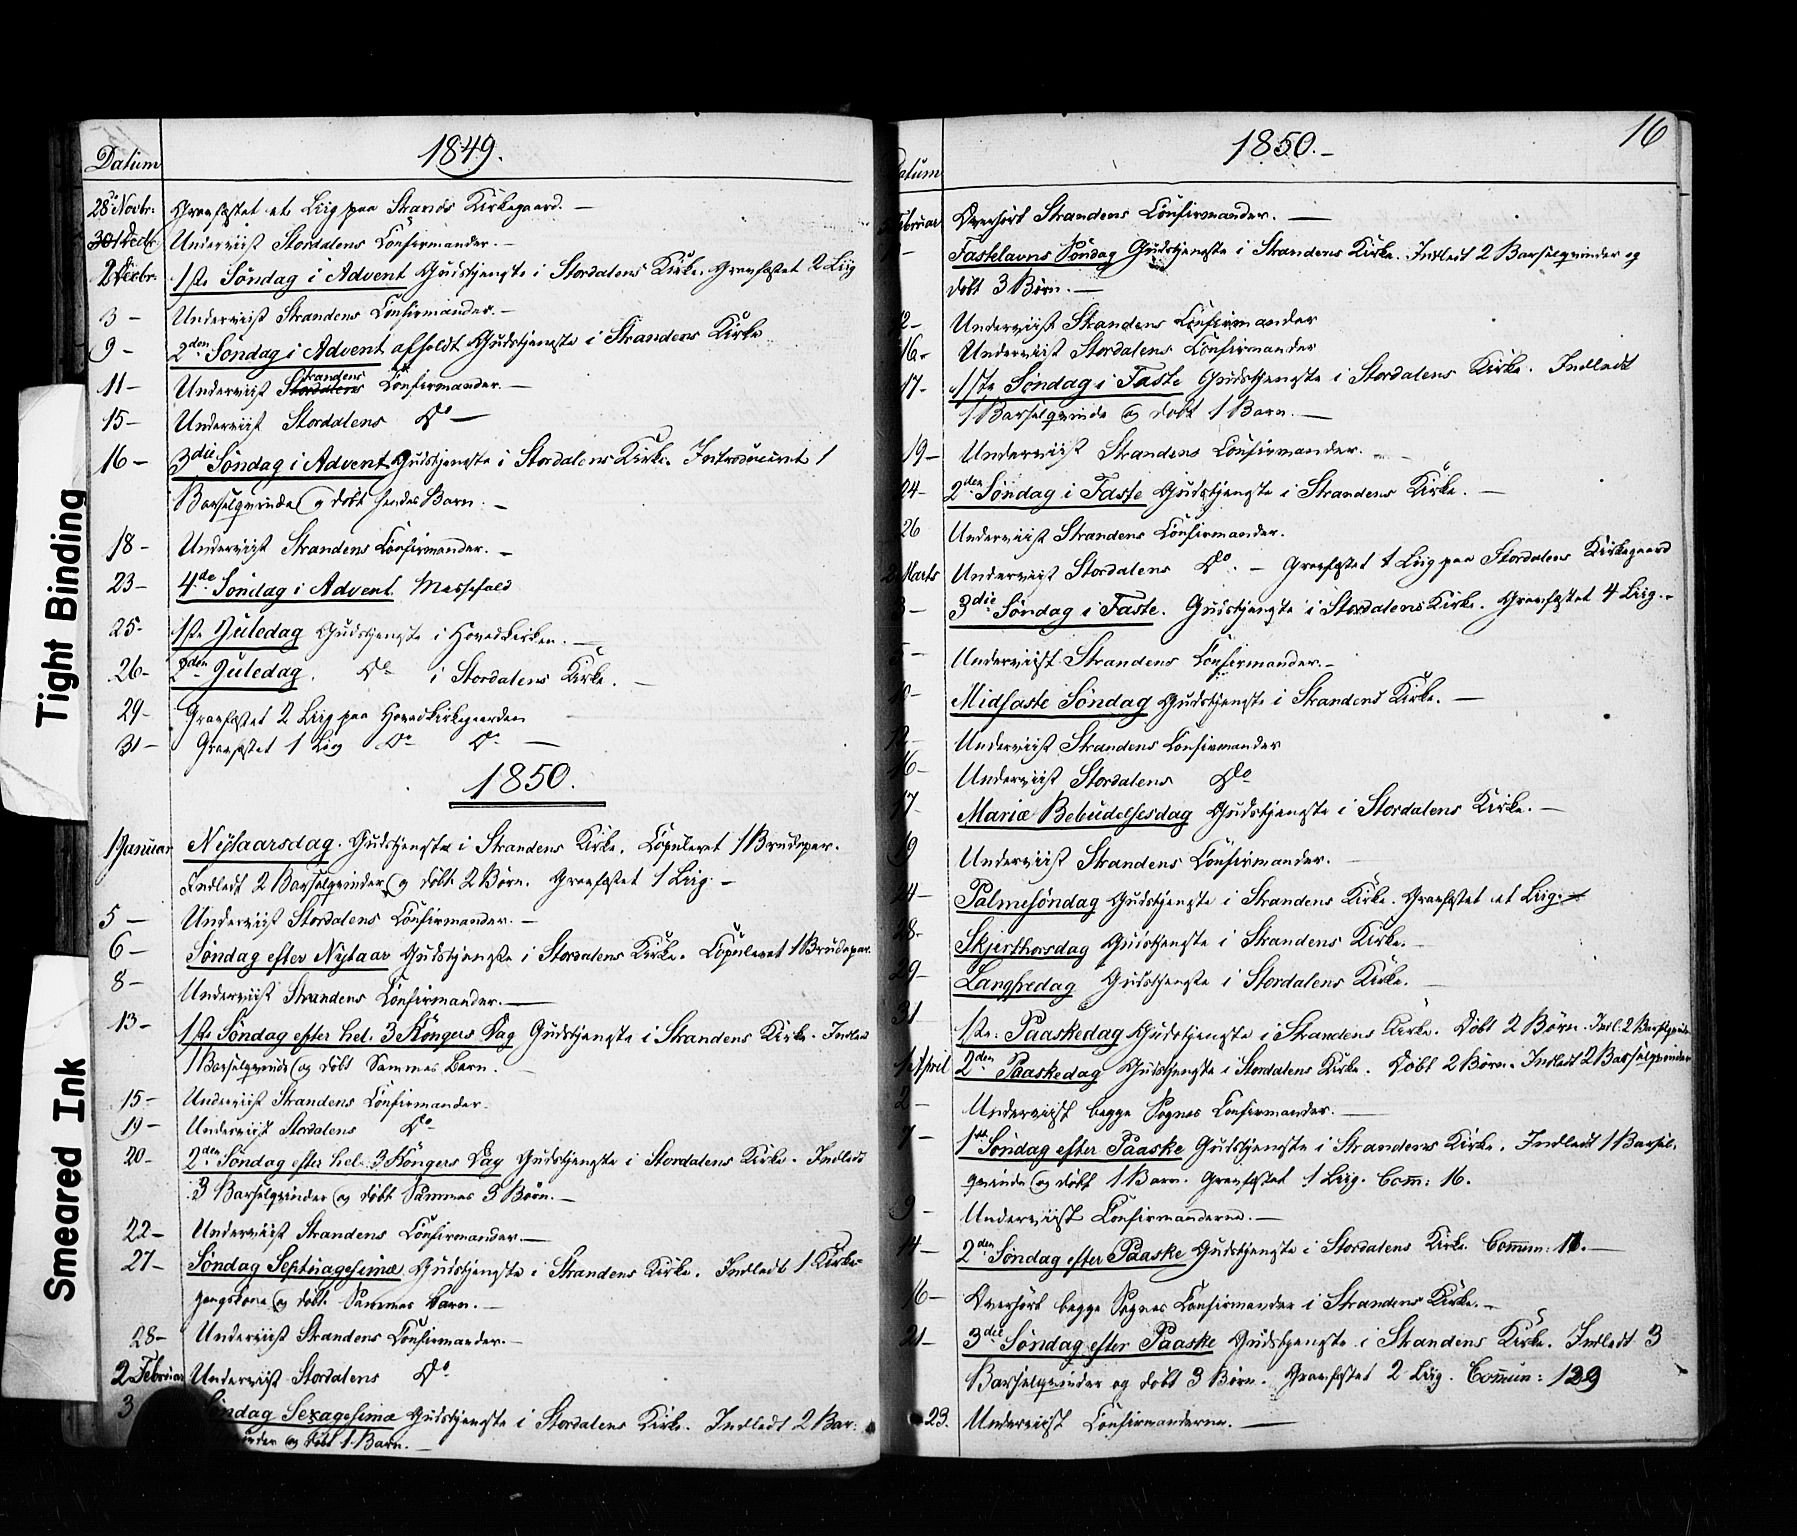 Datum
1849.
28 Novbr: Gravfæstet et Liig paa Strands Kirkegaard. —
Underviist Stordalens Confirmander. —
2 Decbr: 1ste Söndag i Advent Gudstjeneste i Stordalens Kirke. Gravfæstet 2 Liig
3 — Underviist Strandens Confirmander. —
9 — 2den Söndag i Advent afholdt Gudstjeneste i Strandens Kirke
11 — Underviist Strandens Confirmander. —
15 — Underviist Stordalens Do —
16 — 3die Söndag i Advent Gudstjeneste i Stordalens Kirke. Introduceret 1
Barselqvinde og döbt hendes Barn. —
18 — Underviist Strandens Confirmander. —
23 — 4de Söndag i Advent. Messefald
25 - 1ste Juledag Gudstjeneste i Hovedkirken. —
26 - 2den Juledag. Do i Stordalens Kirke. —
29 - Gravfæstet 2 Liig paa Hovedkirkegaarden
31 — Gravfæstet 1 Liig Do Do —
1850.
1 Januar Nytaarsdag. Gudstjeneste i Strandens Kirke. Copuleret 1 Brudepar.
Indledt 2 Barselqvinder og döbt 2 Börn. Gravfæstet 1 Liig. —
5 — Underviist Stordalens Confirmander. —
6 — Söndag efter Nytaar Gudstjeneste i Stordalens Kirke. Copuleret 1 Brudepar.
8 — Underviist Strandens Confirmander. —
13 - 1ste Söndag efter hel. 3 Kongers Dag Gudstjeneste i Strandens Kirke. Indledt
1 Barselqvinde og döbt Sammes Barn. —
15 — Underviist Strandens Confirmander.
19 — Underviist Stordalens Do
20 - 2den Söndag efter hel. 3 Kongers Dag Gudstjeneste i Stordalens Kirke. Indledt
3 Barselqvinder og döbt Sammes 3 Börn. —
22 — Underviist Strandens Confirmander. —
27 — Söndag Septuagesimæ Gudstjeneste i Strandens Kirke. Indledt 1 Kirke-
gangskone og döbt Sammes Barn. —
28 — Underviist Strandens Confirmander. —
2 Februar Underviist Stordalens Do
3 Söndag Sexagesimæ Gudstjeneste i Stordalens Kirke. Indledt 2 Bar:
og döbt 1 Barn. —
16
1850. —
Datum
Februar Overhört Strandens Confirmander. —
Fastelavns Söndag Gudstjeneste i Strandens Kirke. Indledt 2 Barselqvinder og
döbt 3 Börn. —
12 — Underviist Strandens Confirmander
16 - Underviist Stordalens Confirmander
17 - 1ste Söndag i Faste Gudstjeneste i Stordalens Kirke. Indledt
1 Barselqvinde og döbt 1 Barn. —
19 — Underviist Strandens Confirmander. —
24 - 2den Söndag i Faste Gudstjeneste i Strandens Kirke. —
26 Underviist Strandens Confirmander.
2 Marts Underviist Stordalens Do. — Gravfæstet 1 Liig paa Stordalens Kirkegaard
3 - 3die Söndag i Faste. Gudstjeneste i Stordalens Kirke. Gravfæstet 4 Liig. -
Underviist Strandens Confirmander. —
10 - Midfaste Söndag Gudstjeneste i Strandens Kirke. —
12 - Underviist Strandens Confirmander
16 - Underviist Stordalens Do
17 - Mariæ Bebudelsesdag Gudstjeneste i Stordalens Kirke. —
19 Underviist Strandens Confirmander. —
24 - Palmesöndag Gudstjeneste i Strandens Kirke. Gravfæstet et Liig. —
28 - Skjerthorsdag Gudstjeneste i Strandens Kirke. —
29 - Langfredag Gudstjeneste i Stordalens Kirke. —
31 1ste Paaskedag Gudstjeneste i Strandens Kirke. Döbt 2 Börn. Indl. 2 Barselqvinder
1 April 2den Paaskedag Gudstjeneste i Stordalens Kirke. Döbt 2 Börn. Indledt 2 Barselqvinder
2 - Underviist begge Sognes Confirmander. —
7 - 1ste Söndag efter Paaske Gudstjeneste i Strandens Kirke. Indledt 1 Barsel-
qvinde og döbt 1 Barn. Gravfæstet 1 Liig. Com: 16.
9 - Underviist Confirmanderne. —
14 — 2den Söndag efter Paaske Gudstjeneste i Stordalens Kirke Commun: 11. —
16 — Overhört begge Sognes Confirmander i Strandens Kirke. —
21 - 3die Söndag efter Paaske Gudstjeneste i Strandens Kirke. Indledt 3
Barselqvinder og döbt 3 Börn. Gravfæstet 2 Liig. Commun: 129
23. Underviist Confirmanderne. —
Tight Binding
Smeared Ink